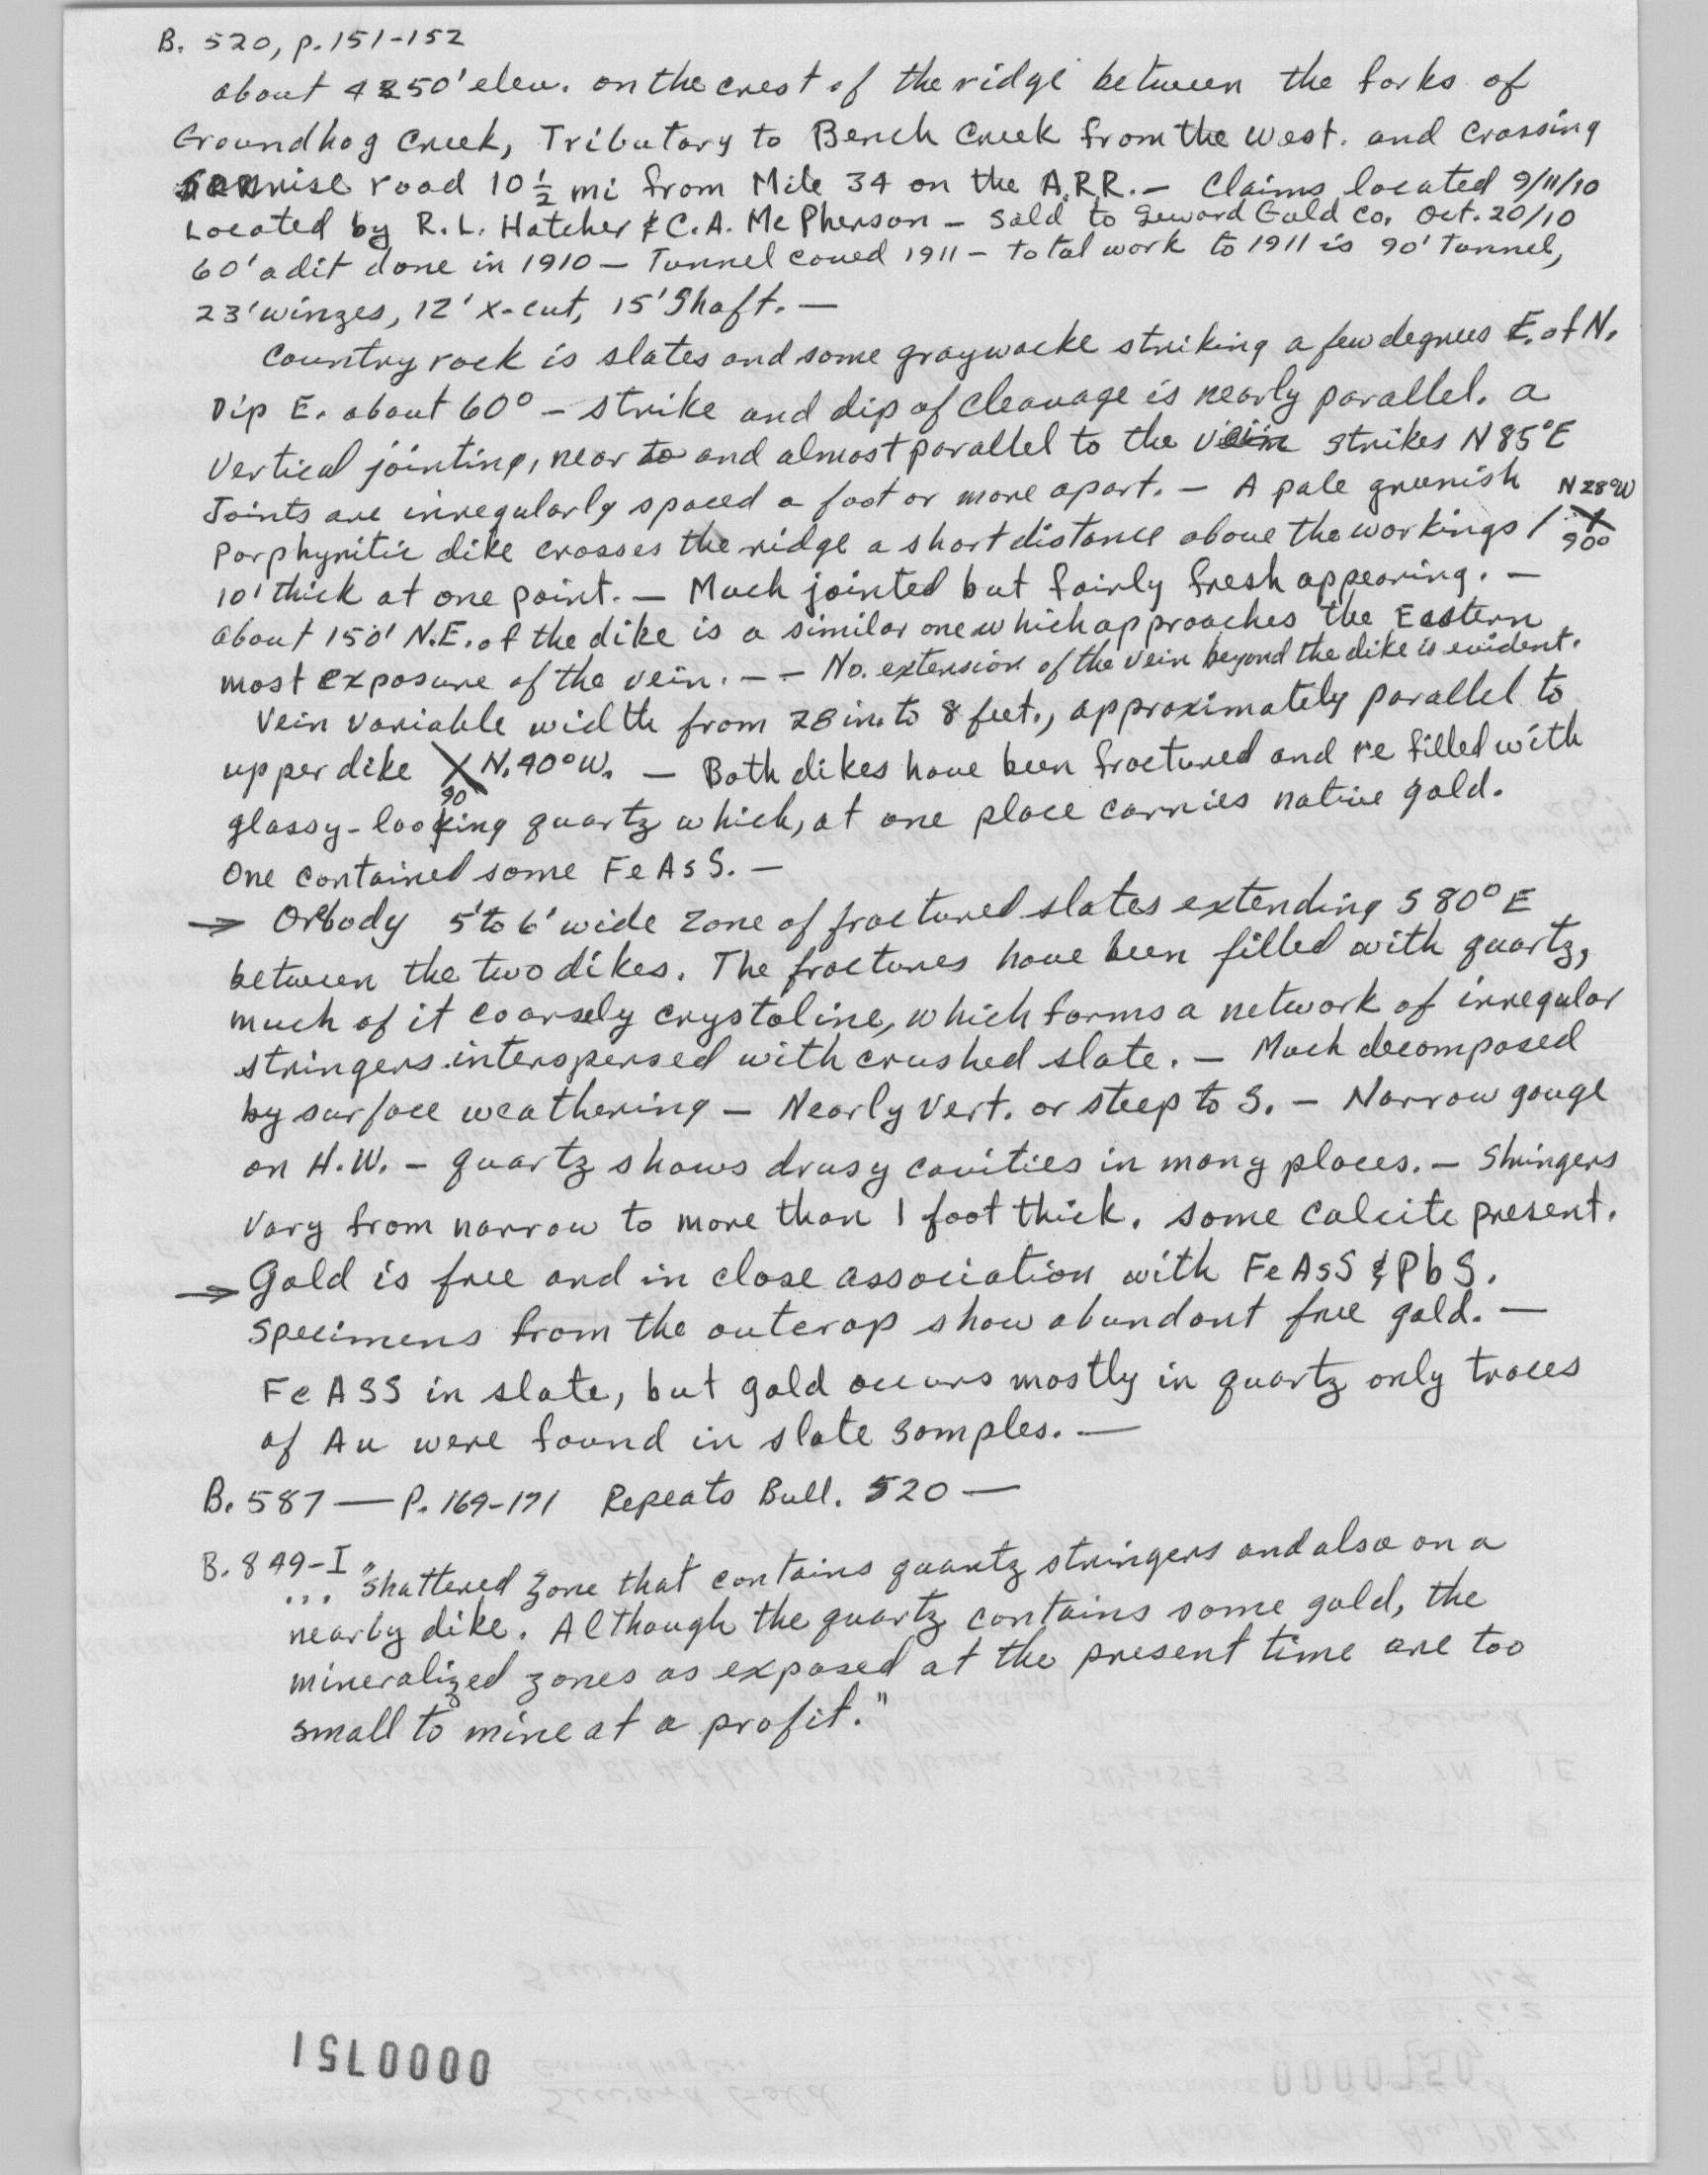 B. 520, p. 151-152
about 4250' elev. on the crest of the ridge between the forks of
Groundhog Creek, Tributary to Bench Creek from the west. and crossing
sunrise road 10 1/2 mi from Mile 34 on the A.R.R. — Claims located 9/11/10
Located by R.L. Hatcher & C.A. McPherson — Sold to Seward Gold Co. Oct. 20/10
60' adit done in 1910 — Tunnel caved 1911 — total work to 1911 is 90' Tunnel,
23' winzes, 12' x-cut, 15' Shaft. —
Country rock is slates and some graywacke striking a few degrees E. of N.
Dip E. about 60° — strike and dip of cleavage is nearly parallel. a
vertical jointing, near to and almost parallel to the vein strikes N 85° E
Joints are irregularly spaced a foot or more apart. — A pale greenish N 28° W
porphyritic dike crosses the ridge a short distance above the workings / 90°
10' thick at one point. — Much jointed but fairly fresh appearing. —
about 150' N.E. of the dike is a similar one which approaches the Eastern
most exposure of the vein. — — No. extension of the vein beyond the dike is evident.
Vein variable width from 28 in. to 8 feet., approximately parallel to
upper dike N. 40° W. — Both dikes have been fractured and re filled with
90
glassy-looking quartz which, at one place carries native gold.
One contained some FeAsS. —
→ Orbody 5' to 6' wide zone of fractured slates extending S 80° E
between the two dikes. The fractures have been filled with quartz,
much of it coarsely crystaline, which forms a network of irregular
stringers interspersed with crushed slate. — Much decomposed
by surface weathering — Nearly Vert. or steep to S. — Narrow gouge
on H.W. — quartz shows drusy cavities in many places. — Stringers
vary from narrow to more than 1 foot thick. some calcite present.
→ Gold is free and in close association with FeAsS & PbS.
Specimens from the outcrop show abundant free gold. —
FeASS in slate, but gold occurs mostly in quartz only traces
of Au were found in slate samples. —
B. 587 — P. 169-171 Repeats Bull. 520 —
B. 849-I
... "shattered zone that contains quartz stringers and also on a
nearby dike. Although the quartz contains some gold, the
mineralized zones as exposed at the present time are too
small to mine at a profit."
0000751